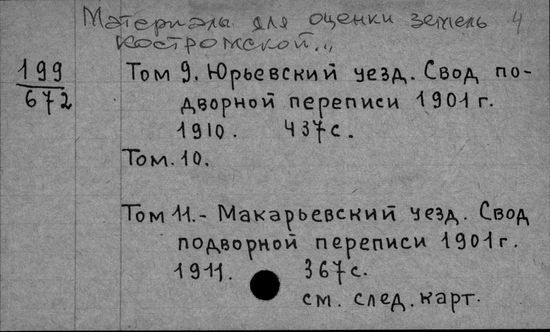 Материалы для оценки земель 4
Костромской...
199
672
Том 9. Юрьевский уезд. Свод по-
дворной переписи 1901 г.
1910. 437 с.
Том. 10.
Том 11.- Макарьевский уезд. Свод
подворной переписи 1901 г.
1911. 367 с.
см. след. карт.